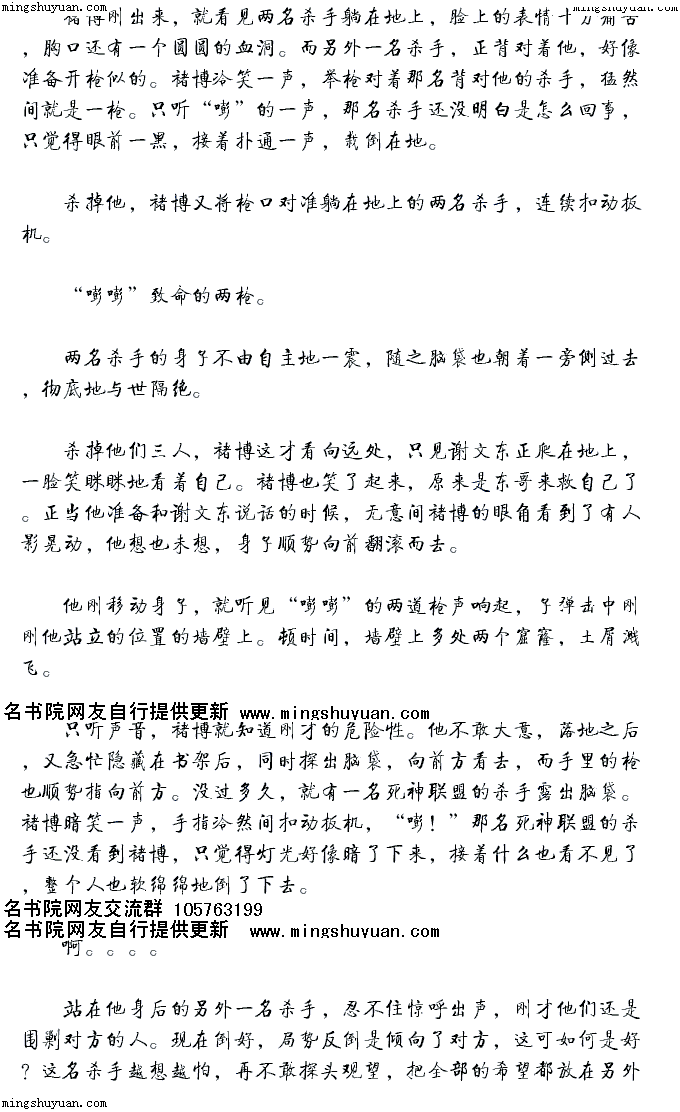 mingshuyuan.com mingshuyuan.com
褚博刚出来，就看见两名杀手躺在地上，脸上的表情十分痛苦
，胸口还有一个圆圆的血洞。而另外一名杀手，正背对着他，好像
准备开枪似的。褚博冷笑一声，举枪对着那名背对他的杀手，猛然
间就是一枪。只听“嘭”的一声，那名杀手还没明白是怎么回事，
只觉得眼前一黑，接着扑通一声，栽倒在地。
杀掉他，褚博又将枪口对准躺在地上的两名杀手，连续扣动板
机。
“嘭嘭”致命的两枪。
两名杀手的身子不由自主地一震，随之脑袋也朝着一旁侧过去
，彻底地与世隔绝。
杀掉他们三人，褚博这才看向远处，只见谢文东正爬在地上，
一脸笑眯眯地看着自己。褚博也笑了起来，原来是东哥来救自己了
。正当他准备和谢文东说话的时候，无意间褚博的眼角看到了有人
影晃动，他想也未想，身子顺势向前翻滚而去。
他刚移动身子，就听见“嘭嘭”的两道枪声响起，子弹击中刚
刚他站立的位置的墙壁上。顿时间，墙壁上多处两个窟窿，土屑溅
飞。
名书院网友自行提供更新 www.mingshuyuan.com
只听声音，褚博就知道刚才的危险性。他不敢大意，落地之后
，又急忙隐藏在书架后，同时探出脑袋，向前方看去，而手里的枪
也顺势指向前方。没过多久，就有一名死神联盟的杀手露出脑袋。
褚博暗笑一声，手指冷然间扣动板机，“嘭！”那名死神联盟的杀
手还没看到褚博，只觉得灯光好像暗了下来，接着什么也看不见了
，整个人也软绵绵地倒了下去。
名书院网友交流群 105763199
名书院网友自行提供更新 www.mingshuyuan.com
啊。。。。
站在他身后的另外一名杀手，忍不住惊呼出声，刚才他们还是
围剿对方的人。现在倒好，局势反倒是倾向了对方，这可如何是好
？这名杀手越想越怕，再不敢探头观望，把全部的希望都放在另外
mingshuyuan.com mingshuyuan.com